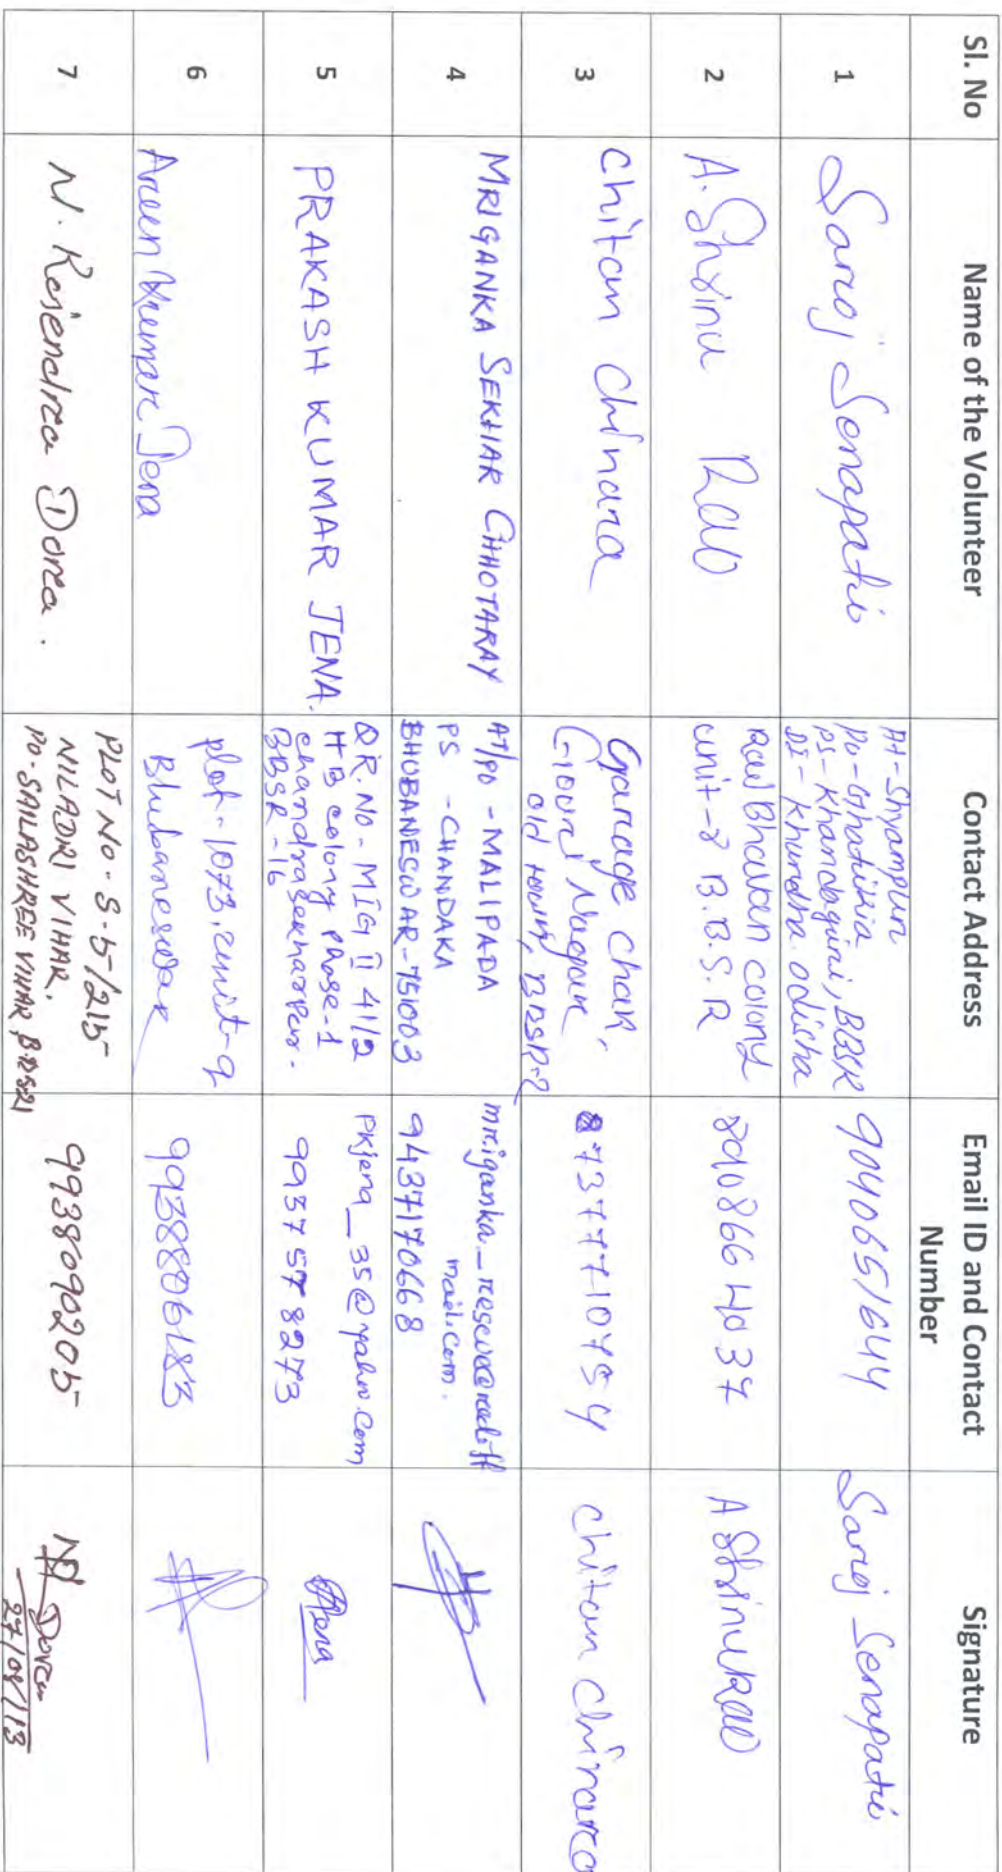 Sl. No
Name of the Volunteer
Contact Address
Email ID and Contact
Number
Signature
1
Saroj Senapati
At-Shyampur
Po-Ghatikia
PS-Khandagiri, BBSR
DI-Khurdha odisha
9040651644
Saroj Senapati
2
A. Shrinu Rao
Raj Bhavan colony
unit-8 B.B.S.R
8908664037
A Shrinu Rao
3
chitan chinara
Garage Chak,
Gouri Nagar
old town, BBSR-2
87377710754
chitan chinara
4
MRIGANKA SEKHAR CHHOTARAY
AT/PO - MALIPADA
PS - CHANDAKA
BHUBANESWAR-751003
mriganka_rescue@rediff
mail.com.
9437170668
5
PRAKASH KUMAR JENA.
QR. NO - MIG II 41/2
HB colony phase-1
chandrasekharpur.
BBSR-16
Pkjena_35@yahoo.com
9937578273
Jena
6
Areen Kumar Jena
plot-1073, unit-9
Bhubaneswar
9938806183
7
N. Rajendra Dora.
PLOT NO - S-5/215
NILADRI VIHAR,
PO-SAILASHREE VIHAR BBS21
9938090205
Dora
27/08/113